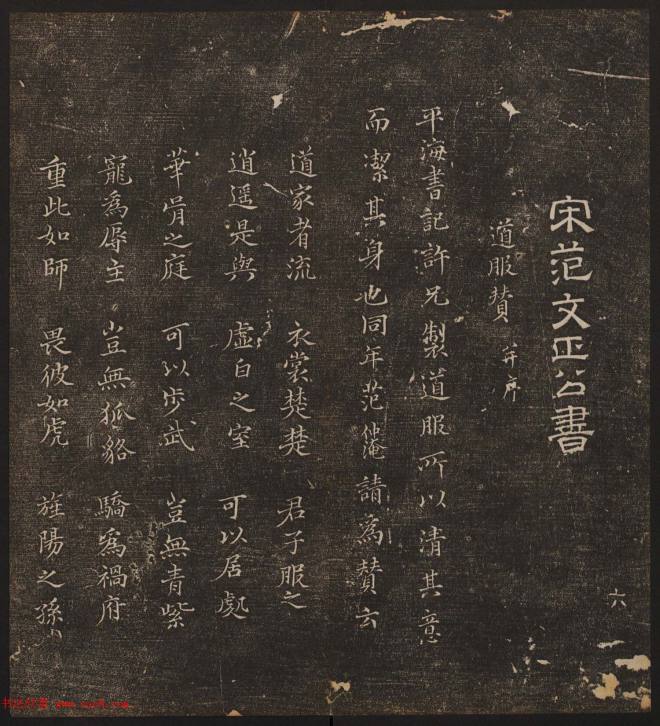 宋范文正公書
道服贊 并序
平海書記許兄製道服所以清其意
而潔其身也同年范仲淹請為贊云
道家者流 衣裳楚楚 君子服之
逍遥是與 虛白之室 可以居處
華胥之庭 可以步武 豈無青紫
寵為辱主 豈無狐貉 驕為禍府
重此如師 畏彼如虎 旌陽之孫
六